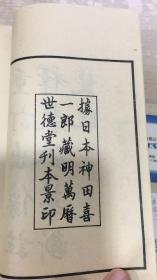 據日本神田喜
一郎藏明萬曆
世德堂刊本景印